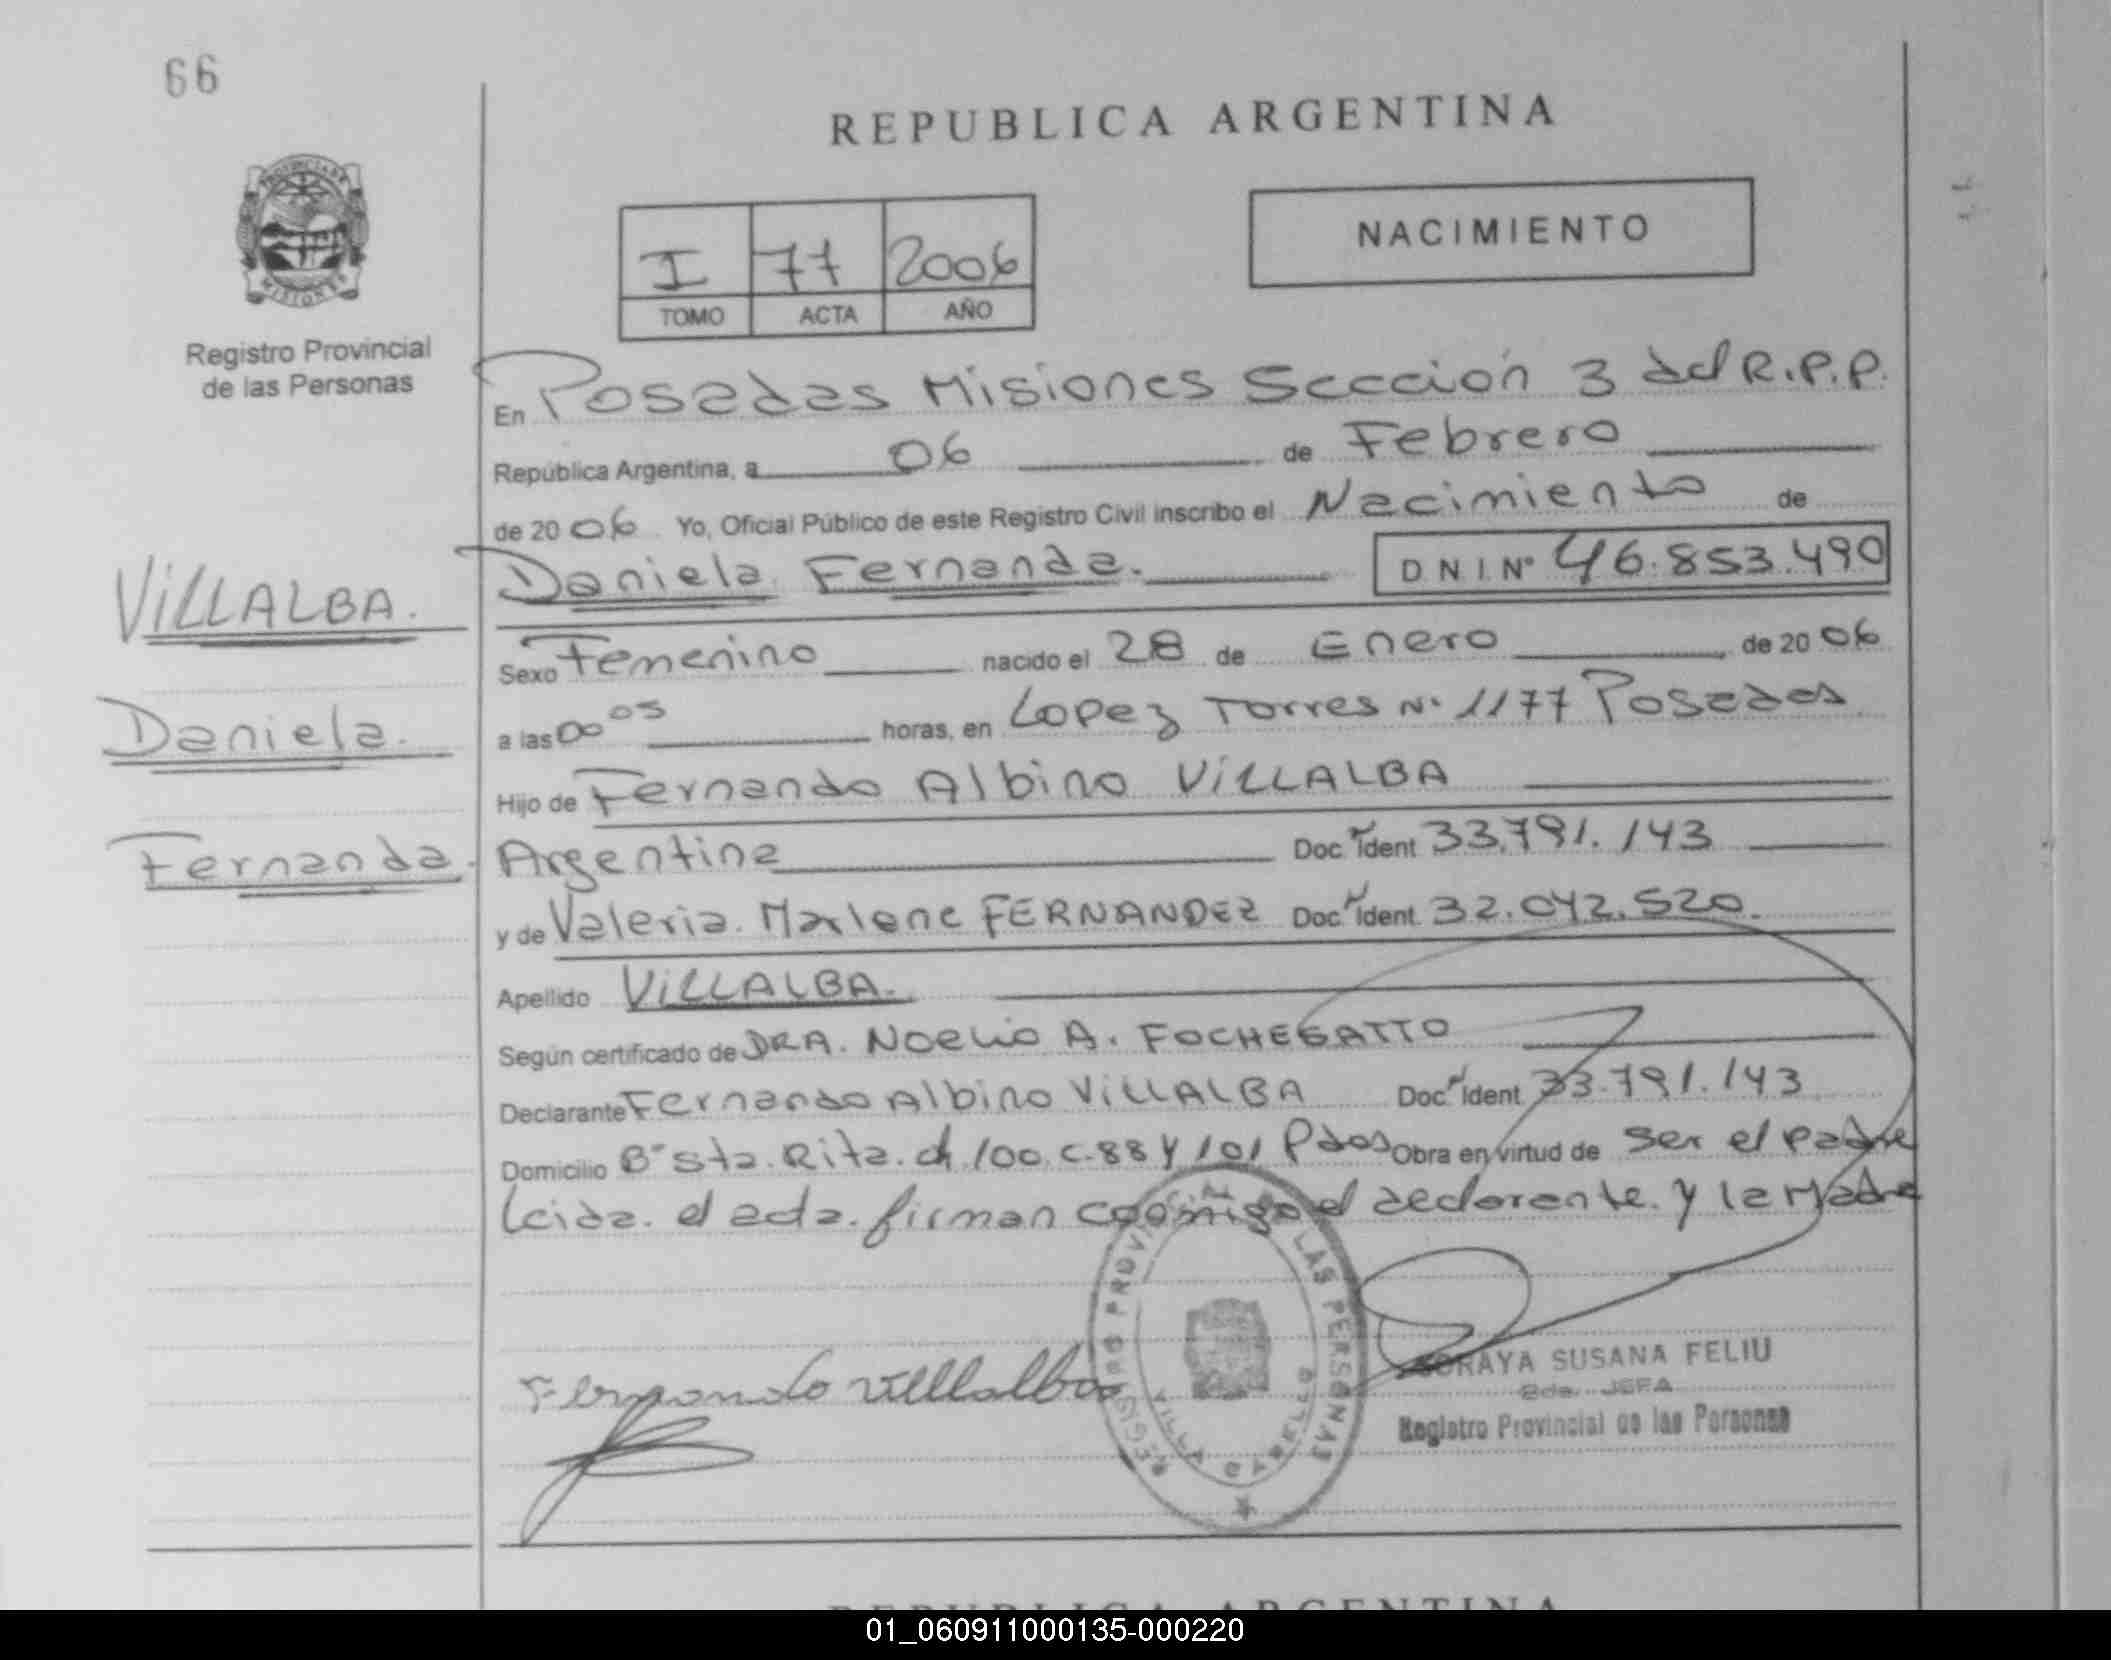 66
REPUBLICA ARGENTINA
PROVINCIA DE
MISIONES
Registro Provincial
de las Personas
NACIMIENTO
I 77 2006
TOMO ACTA AÑO
En Posadas Misiones Sección 3 del R.P.P.
República Argentina, a 06 de Febrero
de 20 06 Yo, Oficial Público de este Registro Civil inscribo el Nacimiento de
Daniela Fernanda. D N I. Nº 46.853.490
VILLALBA.
Daniela.
Fernanda.
Sexo Femenino nacido el 28 de Enero de 20 06
a las 00 05 horas, en Lopez Torres Nº 1177 Posadas
Hijo de Fernando Albino VILLALBA
Argentina Doc. Ident 33.791.143
y de Valeria Marlene FERNANDEZ Doc. Ident. 32.042.520.
Apellido VILLALBA.
Según certificado de DRA. Noelia A. FOCHEGATTO
Declarante Fernando Albino VILLALBA Doc. Ident 33.791.143
Domicilio Bº Sta. Rita. ch 100 C.88 Y 101 Pdas Obra en virtud de ser el padre
Leida el acta firman conmigo el declarante y la Madre
REGISTRO PROVINCIAL DE LAS PERSONAS
VILLA CABELLO
Fernando Villalba
SORAYA SUSANA FELIU
2da. JEFA
Registro Provincial de las Personas
REPUBLICA ARGENTINA
01_060911000135-000220